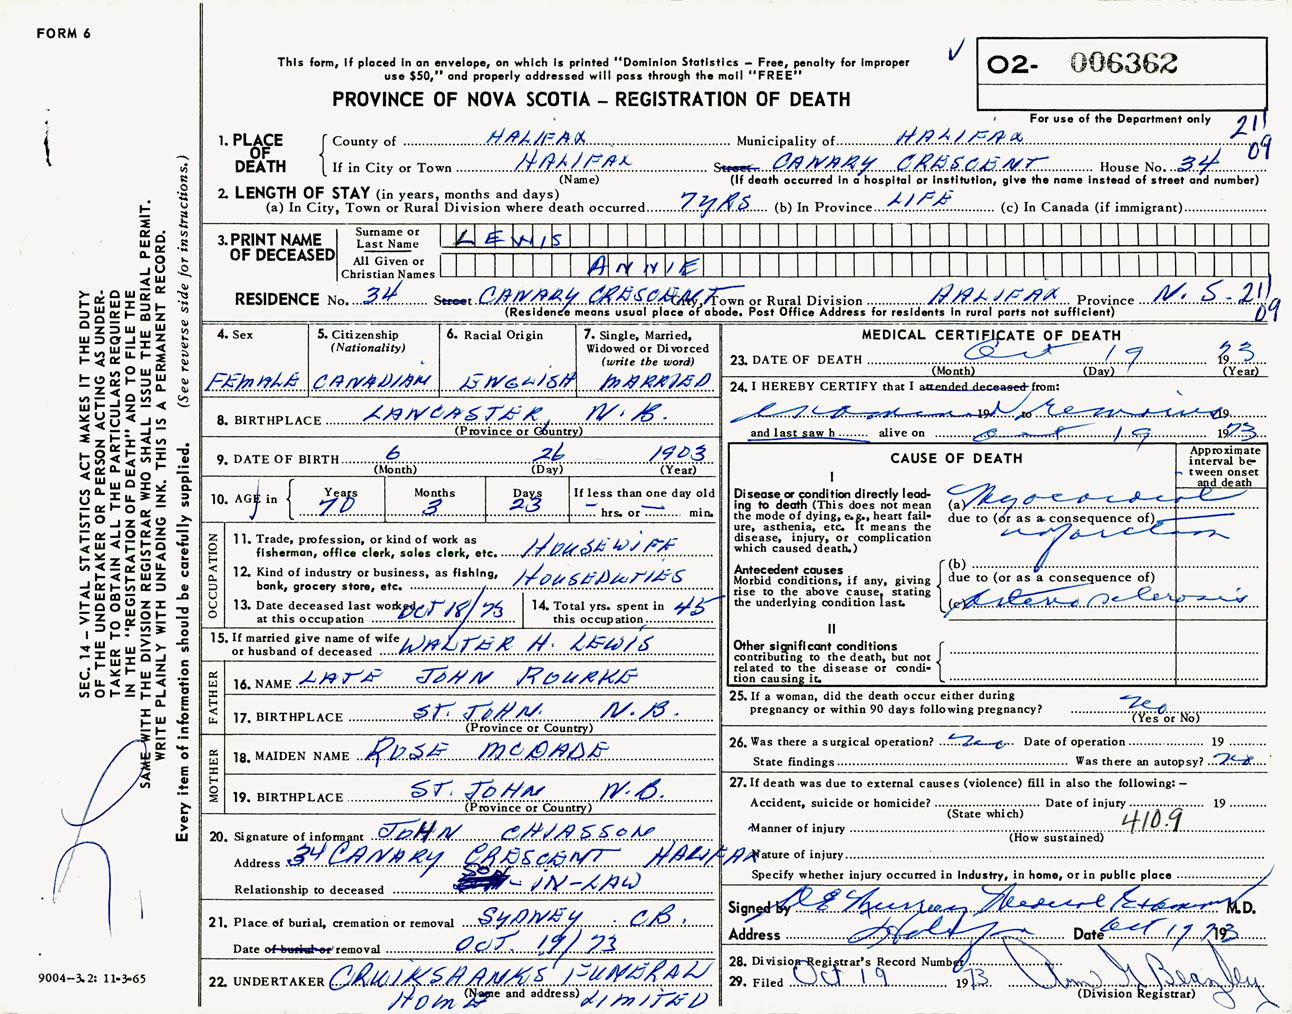 FORM 6
This form, if placed in an envelope, on which is printed "Dominion Statistics – Free, penalty for improper
use $50," and properly addressed will pass through the mail "FREE"
PROVINCE OF NOVA SCOTIA – REGISTRATION OF DEATH
O2- 006362
For use of the Department only
211
09
1. PLACE OF DEATH
County of HALIFAX Municipality of HALIFAX
If in City or Town HALIFAX Street CANARY CRESCENT House No. 34
(Name) (If death occurred in a hospital or institution, give the name instead of street and number)
2. LENGTH OF STAY (in years, months and days)
(a) In City, Town or Rural Division where death occurred 7 YRS (b) In Province LIFE (c) In Canada (if immigrant)
3. PRINT NAME OF DECEASED
Surname or Last Name LEWIS
All Given or Christian Names ANNIE
RESIDENCE No. 34 Street CANARY CRESCENT City, Town or Rural Division HALIFAX Province N.S. 211
09
(Residence means usual place of abode. Post Office Address for residents in rural parts not sufficient)
4. Sex
FEMALE
5. Citizenship
(Nationality)
CANADIAN
6. Racial Origin
ENGLISH
7. Single, Married,
Widowed or Divorced
(write the word)
MARRIED
8. BIRTHPLACE LANCASTER, N.B.
(Province or Country)
9. DATE OF BIRTH 6 26 1903
(Month) (Day) (Year)
10. AGE in Years Months Days If less than one day old
70 3 23 – hrs. or – min.
OCCUPATION
11. Trade, profession, or kind of work as
fisherman, office clerk, sales clerk, etc. HOUSEWIFE
12. Kind of industry or business, as fishing,
bank, grocery store, etc. HOUSEDUTIES
13. Date deceased last worked
at this occupation OCT 18/73
14. Total yrs. spent in
this occupation 45
15. If married give name of wife
or husband of deceased WALTER H. LEWIS
FATHER
16. NAME LATE JOHN ROURKE
17. BIRTHPLACE ST. JOHN N.B.
(Province or Country)
MOTHER
18. MAIDEN NAME ROSE MCDADE
19. BIRTHPLACE ST. JOHN N.B.
(Province or Country)
20. Signature of informant JOHN CHIASSON
Address 34 CANARY CRESCENT HALIFAX
Relationship to deceased SON-IN-LAW
21. Place of burial, cremation or removal SYDNEY C.B.
Date of burial or removal OCT. 19/73
22. UNDERTAKER CRUIKSHANKS FUNERAL
HOME LIMITED
(Name and address)
MEDICAL CERTIFICATE OF DEATH
23. DATE OF DEATH Oct 19 1973
(Month) (Day) (Year)
24. I HEREBY CERTIFY that I attended deceased from:
examined remains 19 to 19
and last saw h alive on Oct 19 1973
CAUSE OF DEATH
Approximate
interval be-
tween onset
and death
I
Disease or condition directly lead-
ing to death (This does not mean
the mode of dying, e.g., heart fail-
ure, asthenia, etc. It means the
disease, injury, or complication
which caused death.)
(a) Myocardial
due to (or as a consequence of)
infarction
Antecedent causes
Morbid conditions, if any, giving
rise to the above cause, stating
the underlying condition last.
(b)
due to (or as a consequence of)
(c) Arteriosclerosis
II
Other significant conditions
contributing to the death, but not
related to the disease or condi-
tion causing it.
25. If a woman, did the death occur either during
pregnancy or within 90 days following pregnancy? No
(Yes or No)
26. Was there a surgical operation? no Date of operation 19
State findings Was there an autopsy? no
27. If death was due to external causes (violence) fill in also the following: –
Accident, suicide or homicide? Date of injury 19
(State which)
Manner of injury 410.9
(How sustained)
Nature of injury
Specify whether injury occurred in industry, in home, or in public place
Signed by Murray Medical Examiner M.D.
Address Halifax Date Oct 19 1973
28. Division Registrar's Record Number
29. Filed Oct 19 1973
(Division Registrar)
SEC. 14 – VITAL STATISTICS ACT MAKES IT THE DUTY
OF THE UNDERTAKER OR PERSON ACTING AS UNDER-
TAKER TO OBTAIN ALL THE PARTICULARS REQUIRED
IN THE "REGISTRATION OF DEATH" AND TO FILE THE
SAME WITH THE DIVISION REGISTRAR WHO SHALL ISSUE THE BURIAL PERMIT.
WRITE PLAINLY WITH UNFADING INK. THIS IS A PERMANENT RECORD.
Every item of information should be carefully supplied. (See reverse side for instructions.)
9004-3.2: 11-3-65